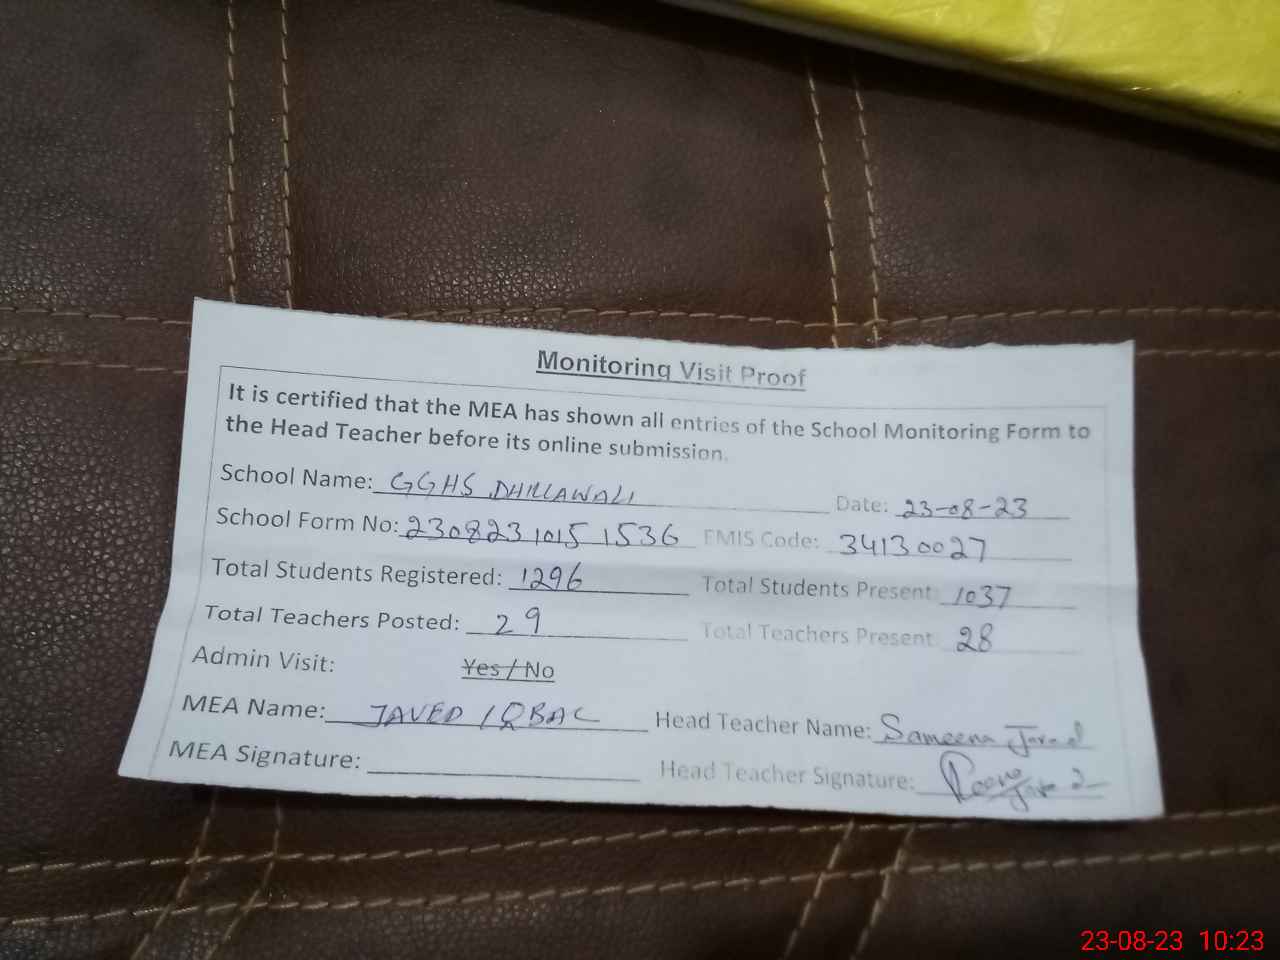 Monitoring Visit Proof
It is certified that the MEA has shown all entries of the School Monitoring Form to
the Head Teacher before its online submission.
School Name: GGHS DHILLAWALI Date: 23-08-23
School Form No: 230823 1015 1536 EMIS Code: 34130027
Total Students Registered: 1296 Total Students Present: 1037
Total Teachers Posted: 29 Total Teachers Present: 28
Admin Visit: Yes / No
MEA Name: JAVED IQBAL Head Teacher Name: Sameena Javed
MEA Signature: Head Teacher Signature:
23-08-23 10:23